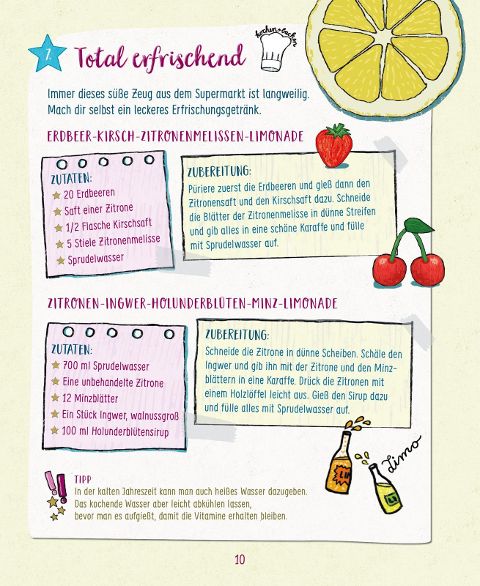 7.
Total erfrischend
kochen+backen
Immer dieses süße Zeug aus dem Supermarkt ist langweilig.
Mach dir selbst ein leckeres Erfrischungsgetränk.
ERDBEER-KIRSCH-ZITRONENMELISSEN-LIMONADE
ZUTATEN:
20 Erdbeeren
Saft einer Zitrone
1/2 Flasche Kirschsaft
5 Stiele Zitronenmelisse
Sprudelwasser
ZUBEREITUNG:
Püriere zuerst die Erdbeeren und gieß dann den
Zitronensaft und den Kirschsaft dazu. Schneide
die Blätter der Zitronenmelisse in dünne Streifen
und gib alles in eine schöne Karaffe und fülle
mit Sprudelwasser auf.
ZITRONEN-INGWER-HOLUNDERBLÜTEN-MINZ-LIMONADE
ZUTATEN:
700 ml Sprudelwasser
Eine unbehandelte Zitrone
12 Minzblätter
Ein Stück Ingwer, walnussgroß
100 ml Holunderblütensirup
ZUBEREITUNG:
Schneide die Zitrone in dünne Scheiben. Schäle den
Ingwer und gib ihn mit der Zitrone und den Minz-
blättern in eine Karaffe. Drück die Zitronen mit
einem Holzlöffel leicht aus. Gieß den Sirup dazu
und fülle alles mit Sprudelwasser auf.
Limo
TIPP
In der kalten Jahreszeit kann man auch heißes Wasser dazugeben.
Das kochende Wasser aber leicht abkühlen lassen,
bevor man es aufgießt, damit die Vitamine erhalten bleiben.
10